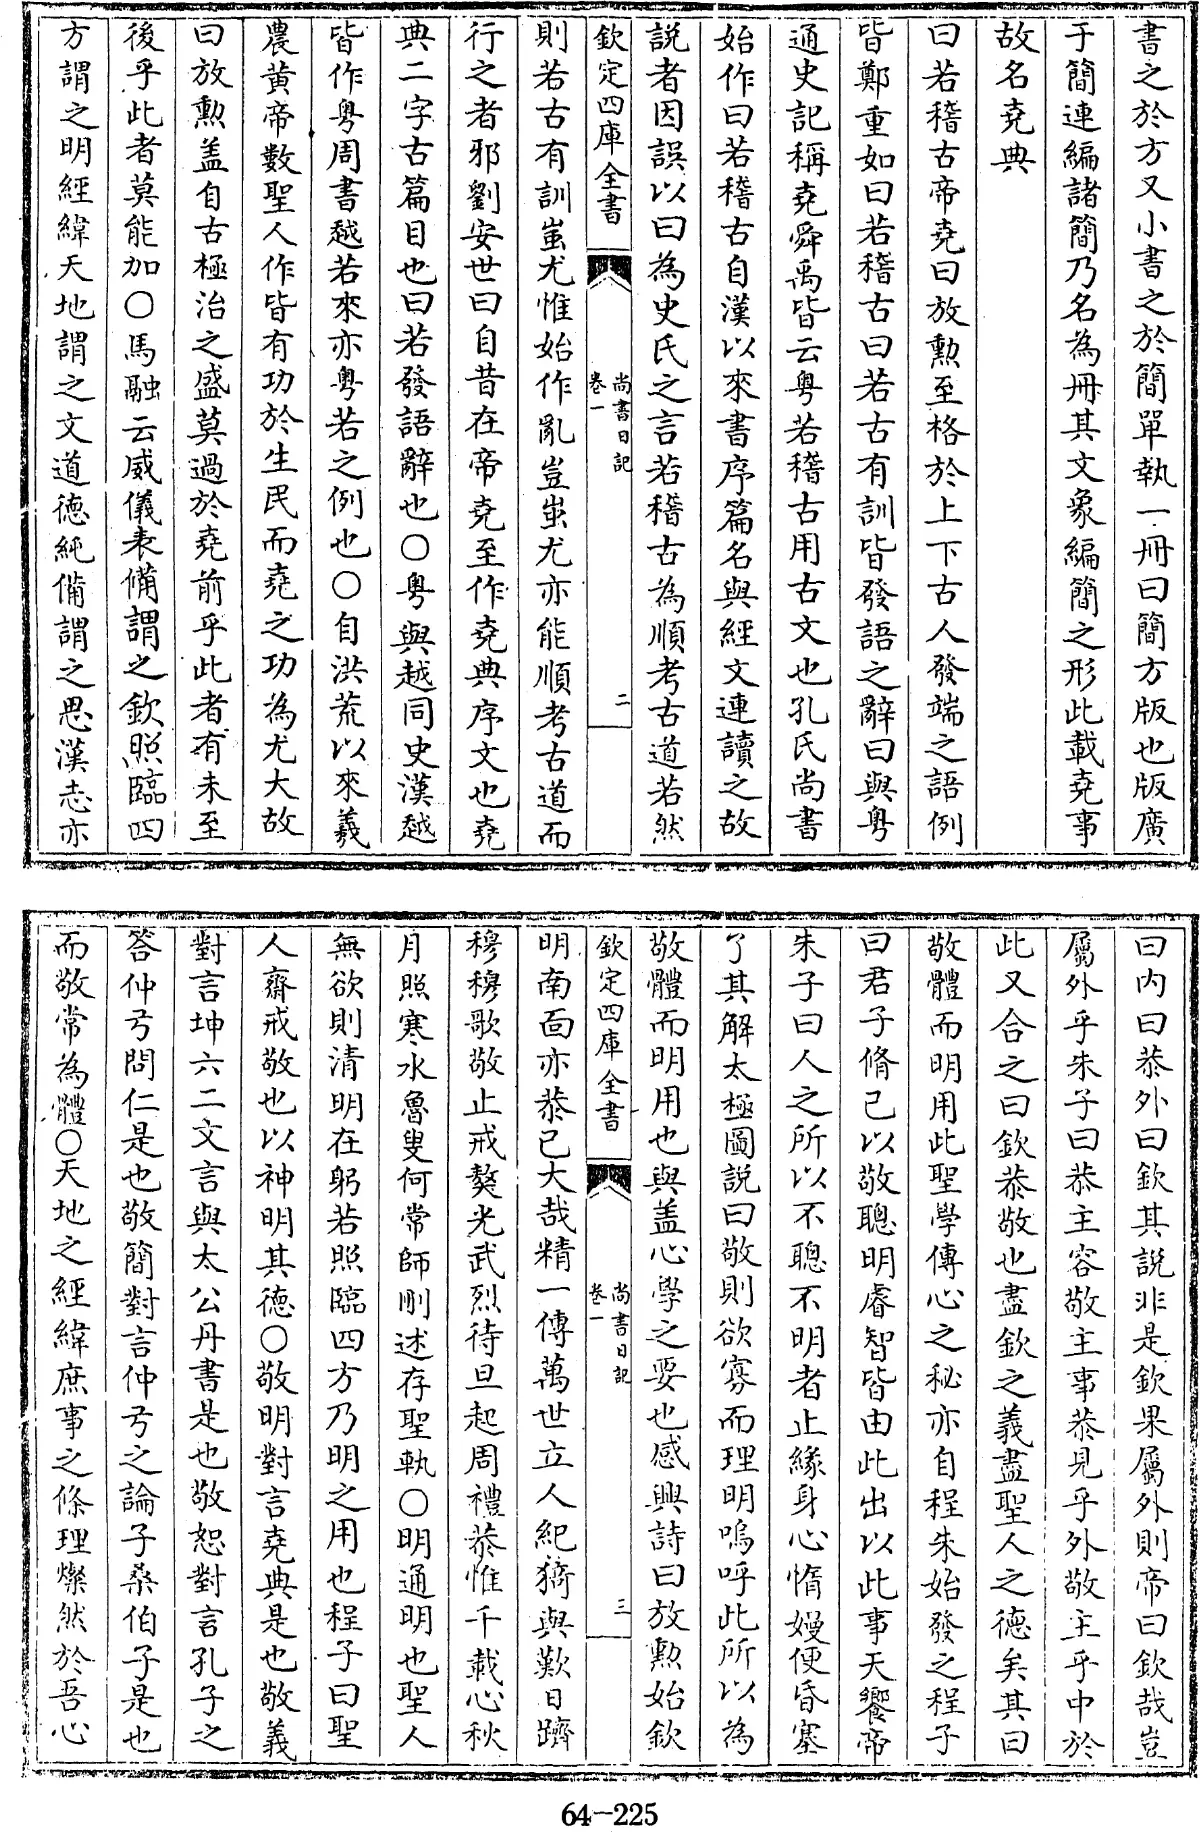 書之於方又小書之於簡單執一冊曰簡方版也版廣
于簡連編諸簡乃名為冊其文象編簡之形此載堯事
故名堯典
曰若稽古帝堯曰放勲至格於上下古人發端之語例
皆鄭重如曰若稽古曰若古有訓皆發語之辭曰與粤
通史記稱堯舜禹皆云粤若稽古用古文也孔氏尚書
始作曰若稽古自漢以來書序篇名與經文連讀之故
說者因誤以曰為史氏之言若稽古為順考古道若然
欽定四庫全書
尚書日記
卷一
二
則若古有訓蚩尤惟始作亂豈蚩尤亦能順考古道而
行之者邪劉安世曰自昔在帝堯至作堯典序文也堯
典二字古篇目也曰若發語辭也○粤與越同史漢越
皆作粤周書越若來亦粤若之例也○自洪荒以來羲
農黄帝數聖人作皆有功於生民而堯之功為尤大故
曰放勲盖自古極治之盛莫過於堯前乎此者有未至
後乎此者莫能加○馬融云威儀表備謂之欽照臨四
方謂之明經緯天地謂之文道德純備謂之思漢志亦
曰内曰恭外曰欽其說非是欽果屬外則帝曰欽哉豈
屬外乎朱子曰恭主容敬主事恭見乎外敬主乎中於
此又合之曰欽恭敬也盡欽之義盡聖人之德矣其曰
敬體而明用此聖學傳心之秘亦自程朱始發之程子
曰君子脩己以敬聰明睿智皆由此出以此事天饗帝
朱子曰人之所以不聰不明者止緣身心惰嫚便昏塞
了其解太極圖說曰敬則欲寡而理明嗚呼此所以為
敬體而明用也與盖心學之要也感興詩曰放勲始欽
欽定四庫全書
尚書日記
卷一
三
明南面亦恭己大哉精一傳萬世立人紀猗與歎日躋
穆穆歌敬止戒獒光武烈待旦起周禮恭惟千載心秋
月照寒水魯叟何常師刪述存聖軌○明通明也聖人
無欲則清明在躬若照臨四方乃明之用也程子曰聖
人齋戒敬也以神明其德○敬明對言堯典是也敬義
對言坤六二文言與太公丹書是也敬恕對言孔子之
答仲弓問仁是也敬簡對言仲弓之論子桑伯子是也
而敬常為體○天地之經緯庶事之條理燦然於吾心
64-225